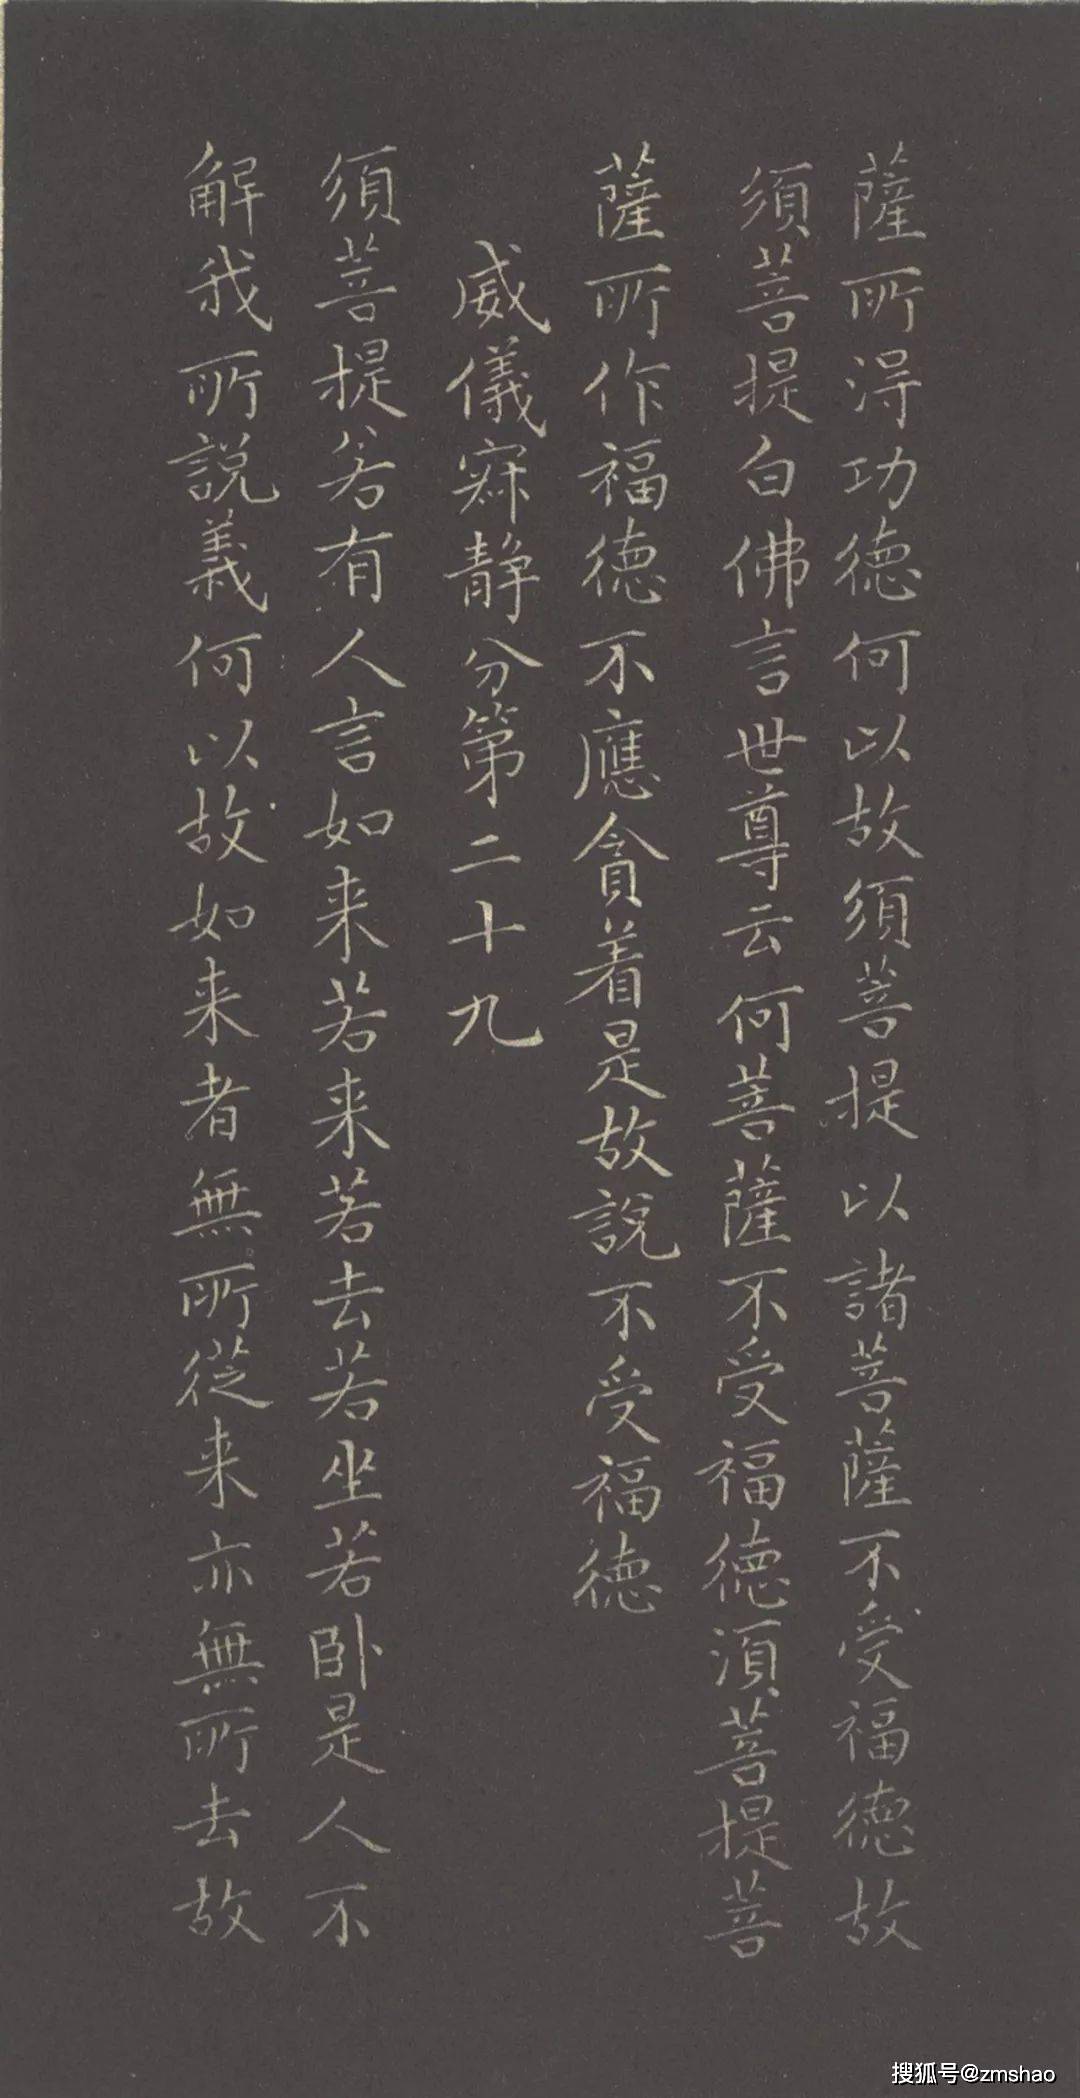 薩所得功德何以故須菩提以諸菩薩不受福德故
須菩提白佛言世尊云何菩薩不受福德須菩提菩
薩所作福德不應貪着是故說不受福德
威儀寂静分第二十九
須菩提若有人言如来若来若去若坐若卧是人不
解我所說義何以故如来者無所從来亦無所去故
搜狐号@zmshao